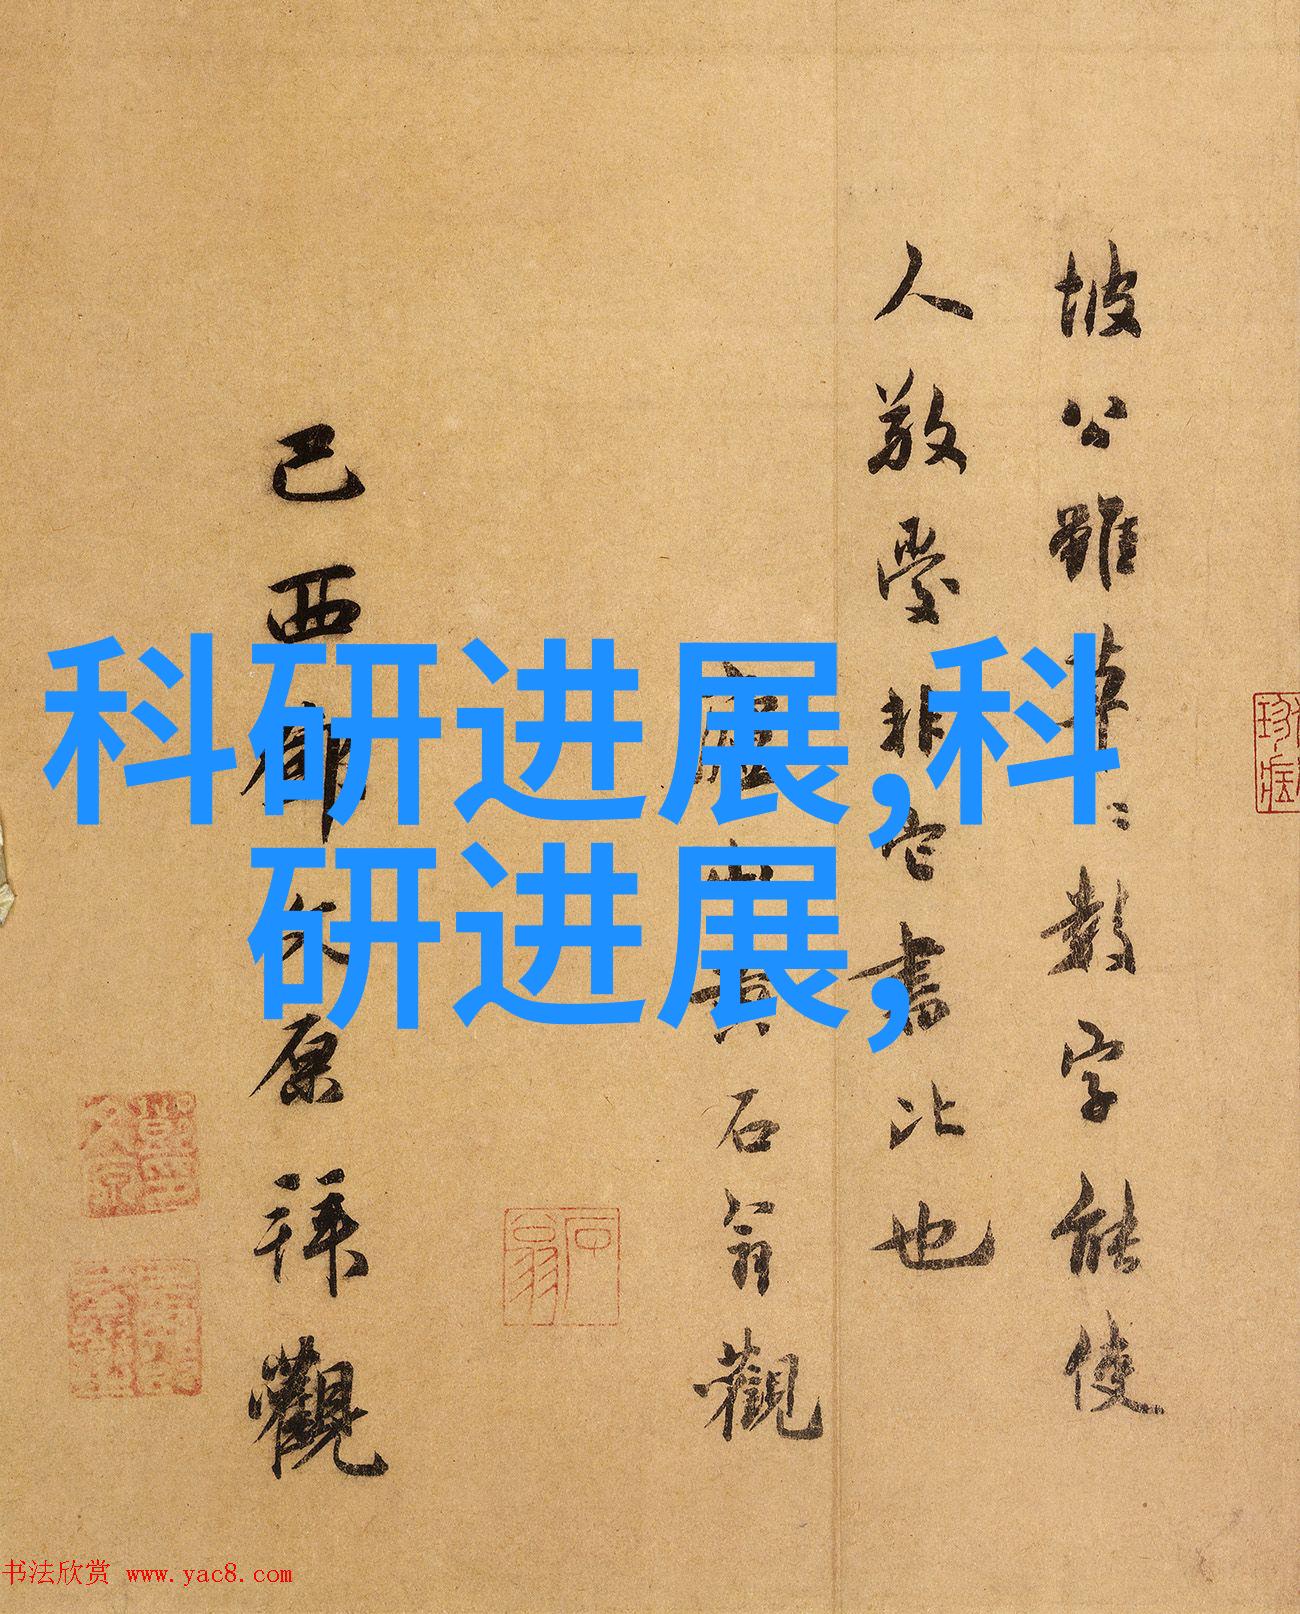 坡公雖草〻數字能使
人敬愛非它書比也
石翁觀
己酉鄧文原拜觀
科研进展,科
研进展,
石翁
书法欣赏 www.yac8.com